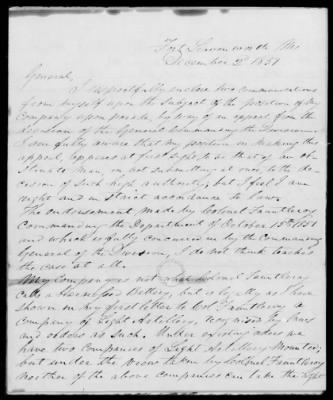 Fort Leavenworth Mo
November 2d 1851
General,
I respectfully enclose two communications
from myself upon the subject of the position of my
Company upon parade, by way of an appeal from the
decision of the General Commanding the Division.
I am fully aware that my position in making this
appeal, appears at first sight to be that of an ob-
stinate man, in not submitting at once to the de-
cision of such high authority, but I feel I am
right and in strict accordance to law.
The endorsement made by Colonel Fauntleroy
Commanding the Department of October 15th 1851
and which is fully concurred in by the Commanding
General of the Division, I do not think touches
the case at all.
My Company is not what Colonel Fauntleroy
calls a Battery, but is by law as I have
shown in my first letter to Col Fauntleroy a
Company of Light Artillery, recognized by laws
and orders as such. Under existing laws we
have two Companies of Light Artillery Mounted,
but under the view taken by Colonel Fauntleroy
neither of the above companies can take the right